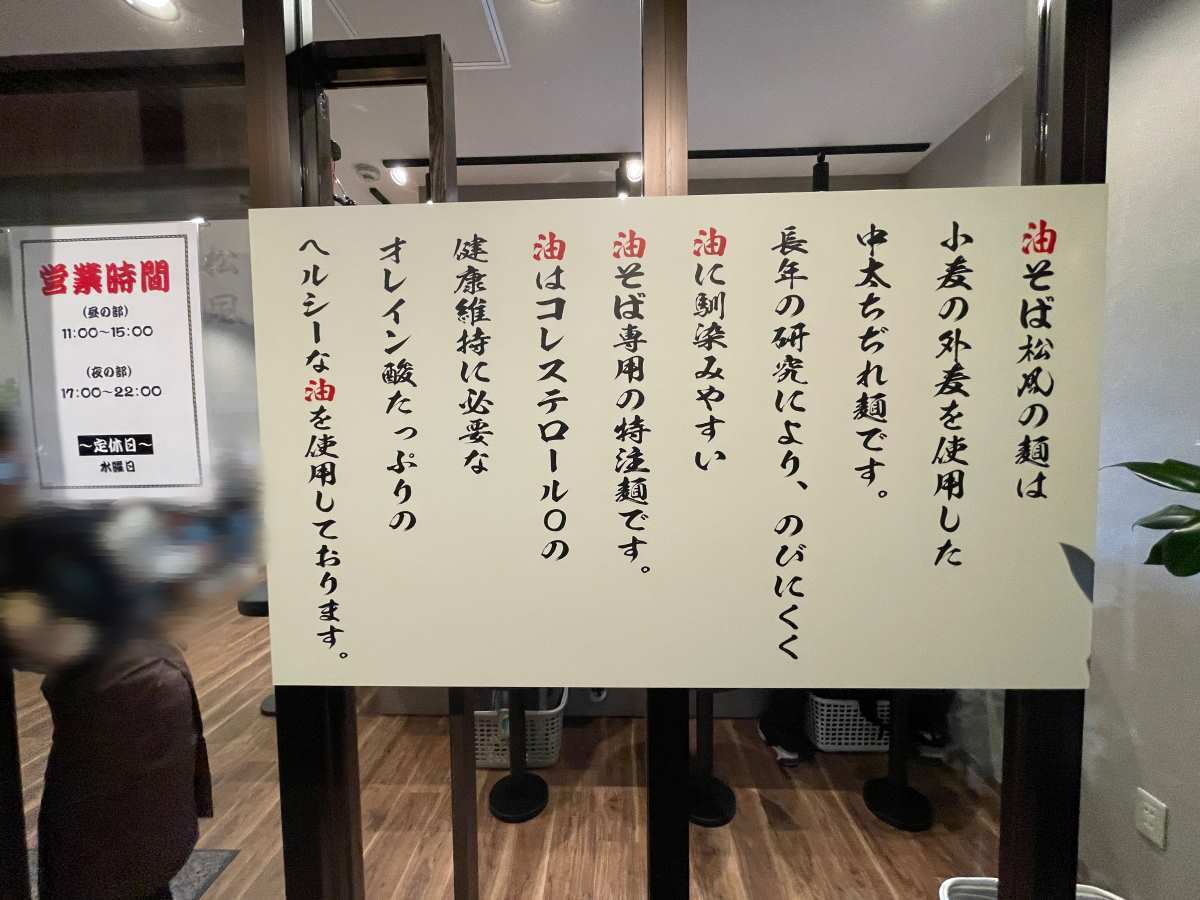 油そば松風の麺は
小麦の外麦を使用した
中太ちぢれ麺です。
長年の研究により、のびにくく
油に馴染みやすい
油そば専用の特注麺です。
油はコレステロール〇の
健康維持に必要な
オレイン酸たっぷりの
ヘルシーな油を使用しております。
営業時間
(昼の部)
11:00~15:00
(夜の部)
17:00~22:00
~定休日~
水曜日
松風